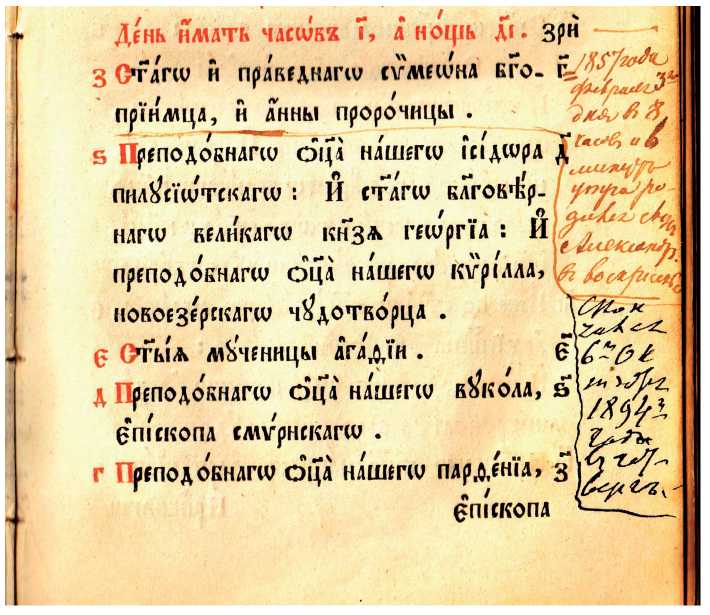 Де́нь и҆́мать часѡ́въ і҃, а҆ но́щь д҃і. зрѝ
з Ст҃а́гѡ и҆ пра́веднагѡ сѷмеѡ́на бг҃о- г҃
прїи́мца, и҆ а҆́нны проро́чицы .
ѕ Преподо́бнагѡ ѻ҆ц҃а̀ на́шегѡ і҆сі́дѡра д҃
пилꙋсїѡ́тскагѡ : И҆ ст҃а́гѡ бл҃говѣ́р-
нагѡ вели́кагѡ кн҃зѧ гео́ргїа : И҆
преподо́бнагѡ ѻ҆ц҃а̀ на́шегѡ кѷрі́лла,
новоезе́рскагѡ чꙋдотво́рца .
є Ст҃ы́ѧ мꙋ́ченицы а҆га́ѳїи . є҃
д Преподо́бнагѡ ѻ҆ц҃а̀ на́шегѡ вꙋко́ла, ѕ҃
є҆пі́скопа смѵ́рнскагѡ .
г Преподо́бнагѡ ѻ҆ц҃а̀ на́шегѡ парѳе́нїа, з҃
є҆пі́скопа
1857 года
февраля 3го
дня в 8
часов и в
минутъ
утра ро-
дился
Александр.
в воскрисение
Скон
чался
6го Ок
тября
1894
года
в чет-
вергъ.